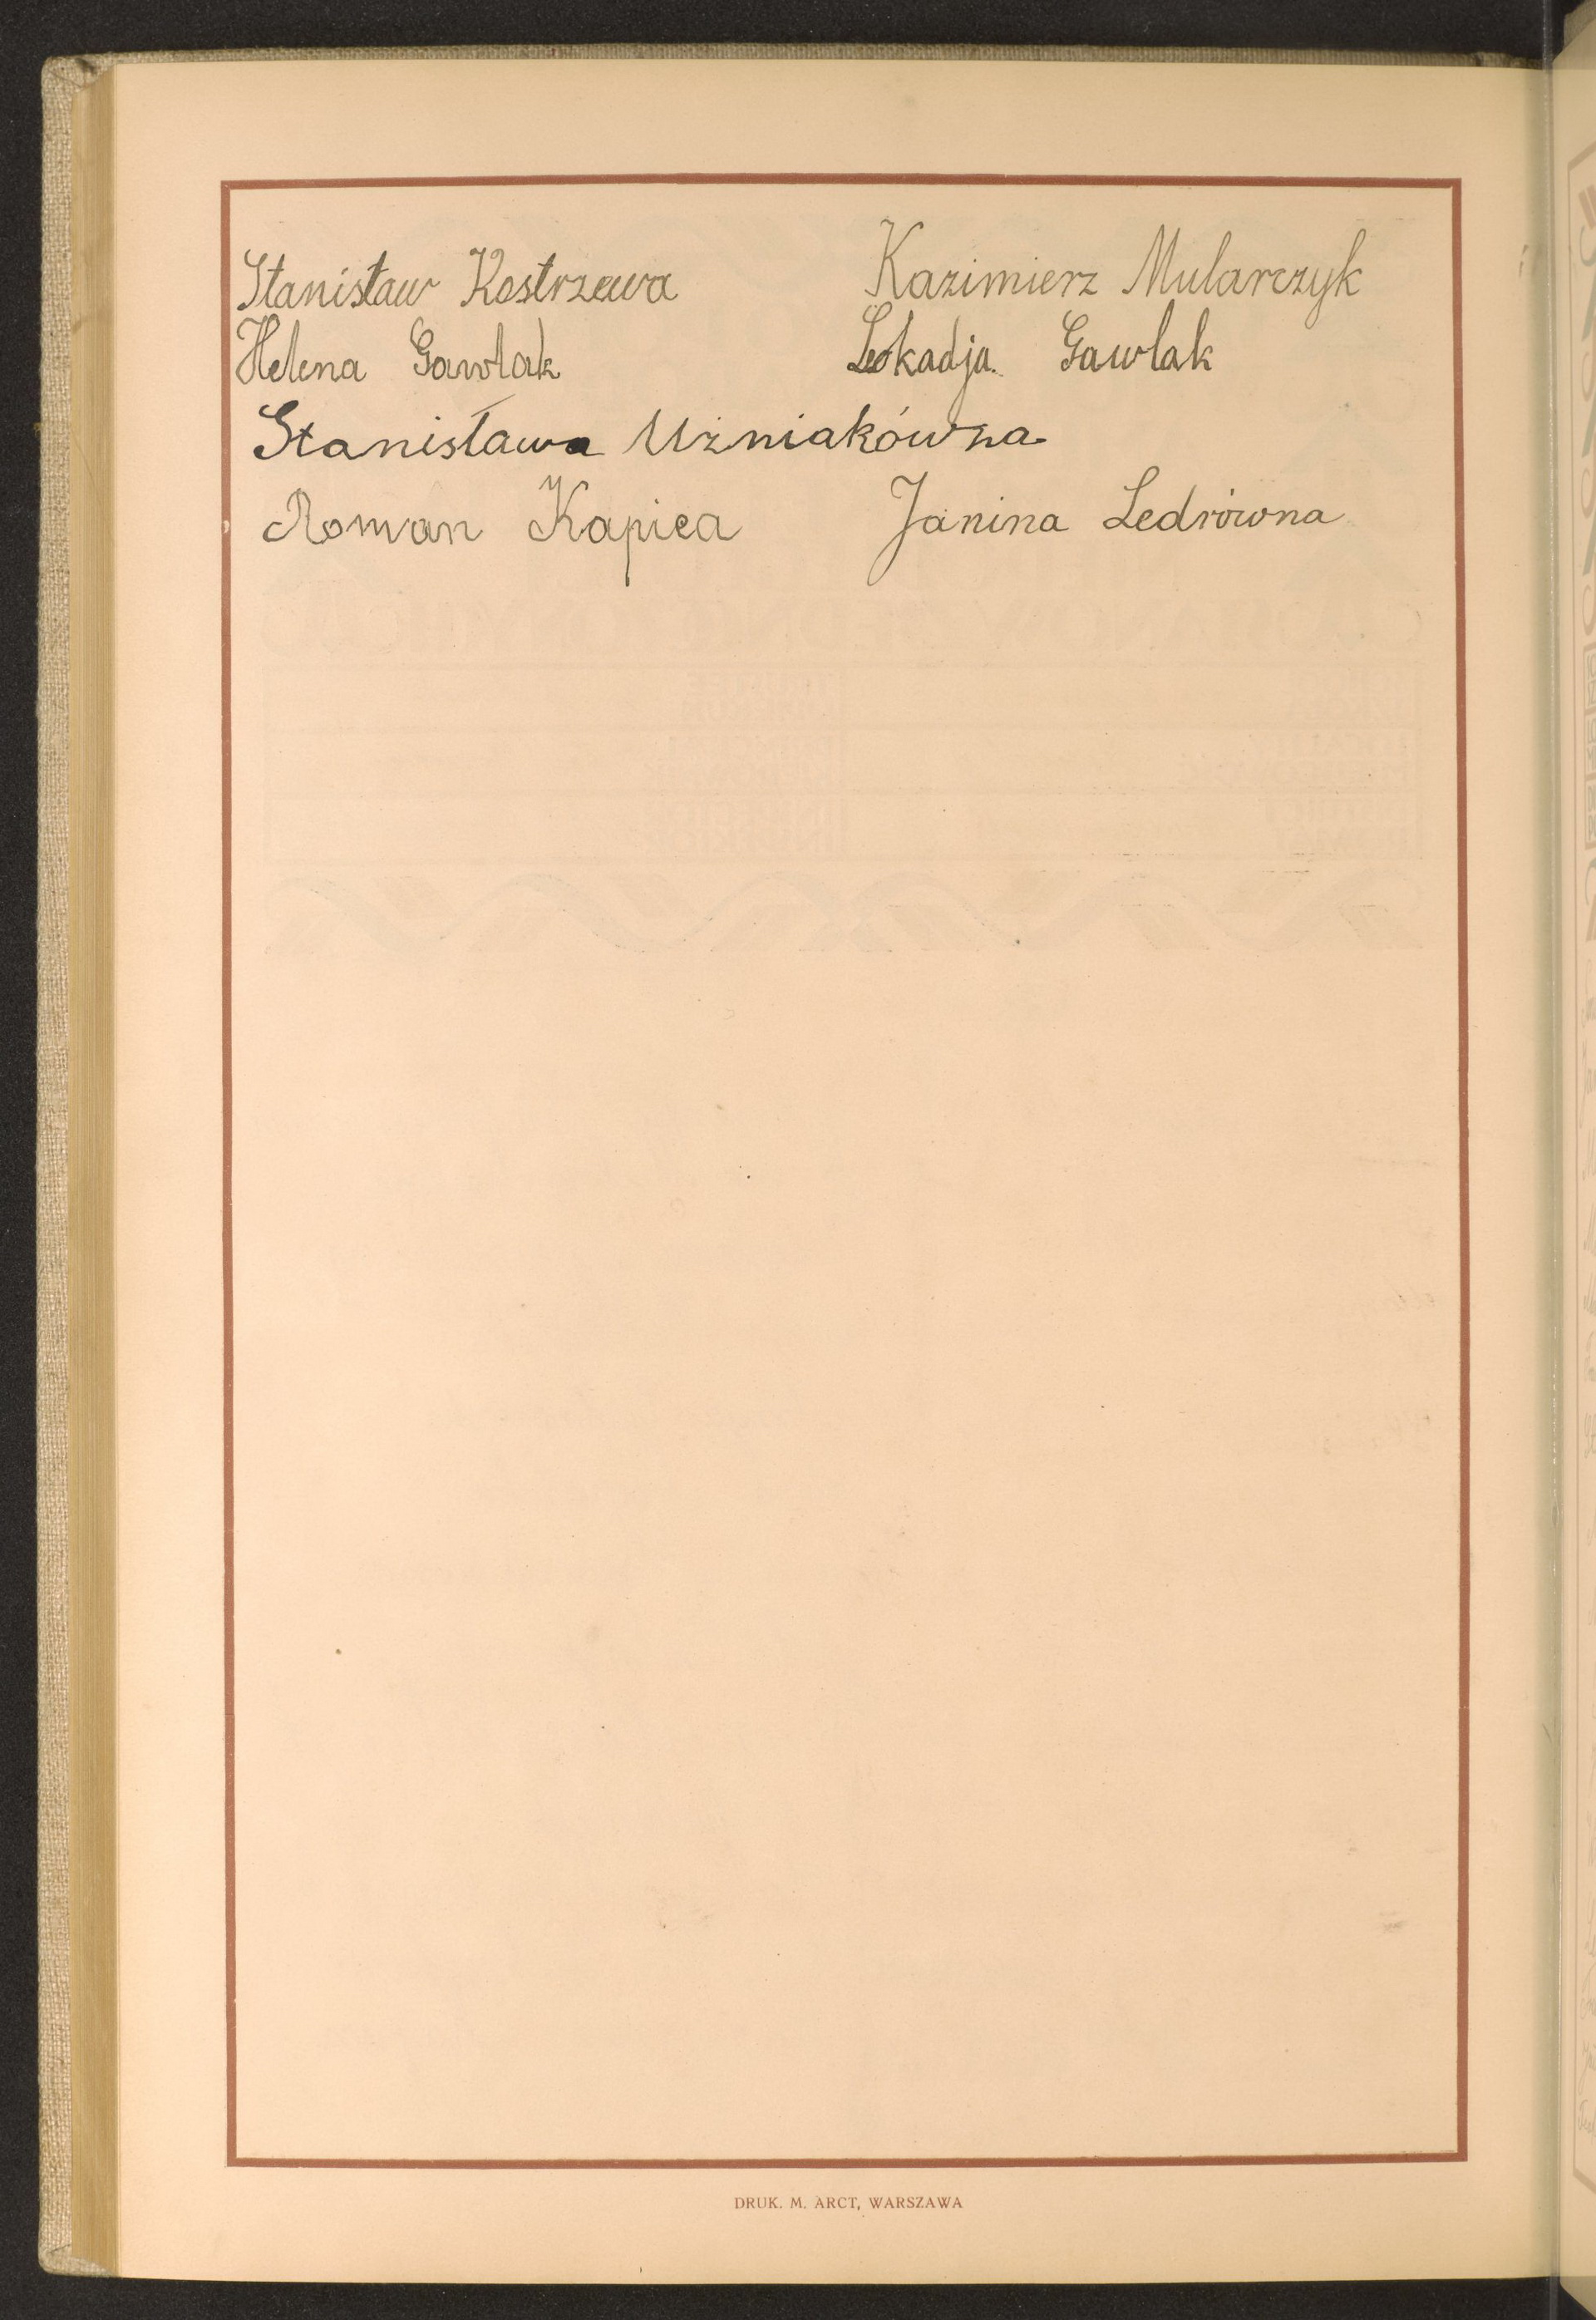 Stanisław Kostrzewa Kazimierz Mularczyk
Helena Gawlak Leokadja. Gawlak
Stanisława Uzniakówna
Roman Kapica Janina Ledrówna
DRUK. M. ARCT, WARSZAWA